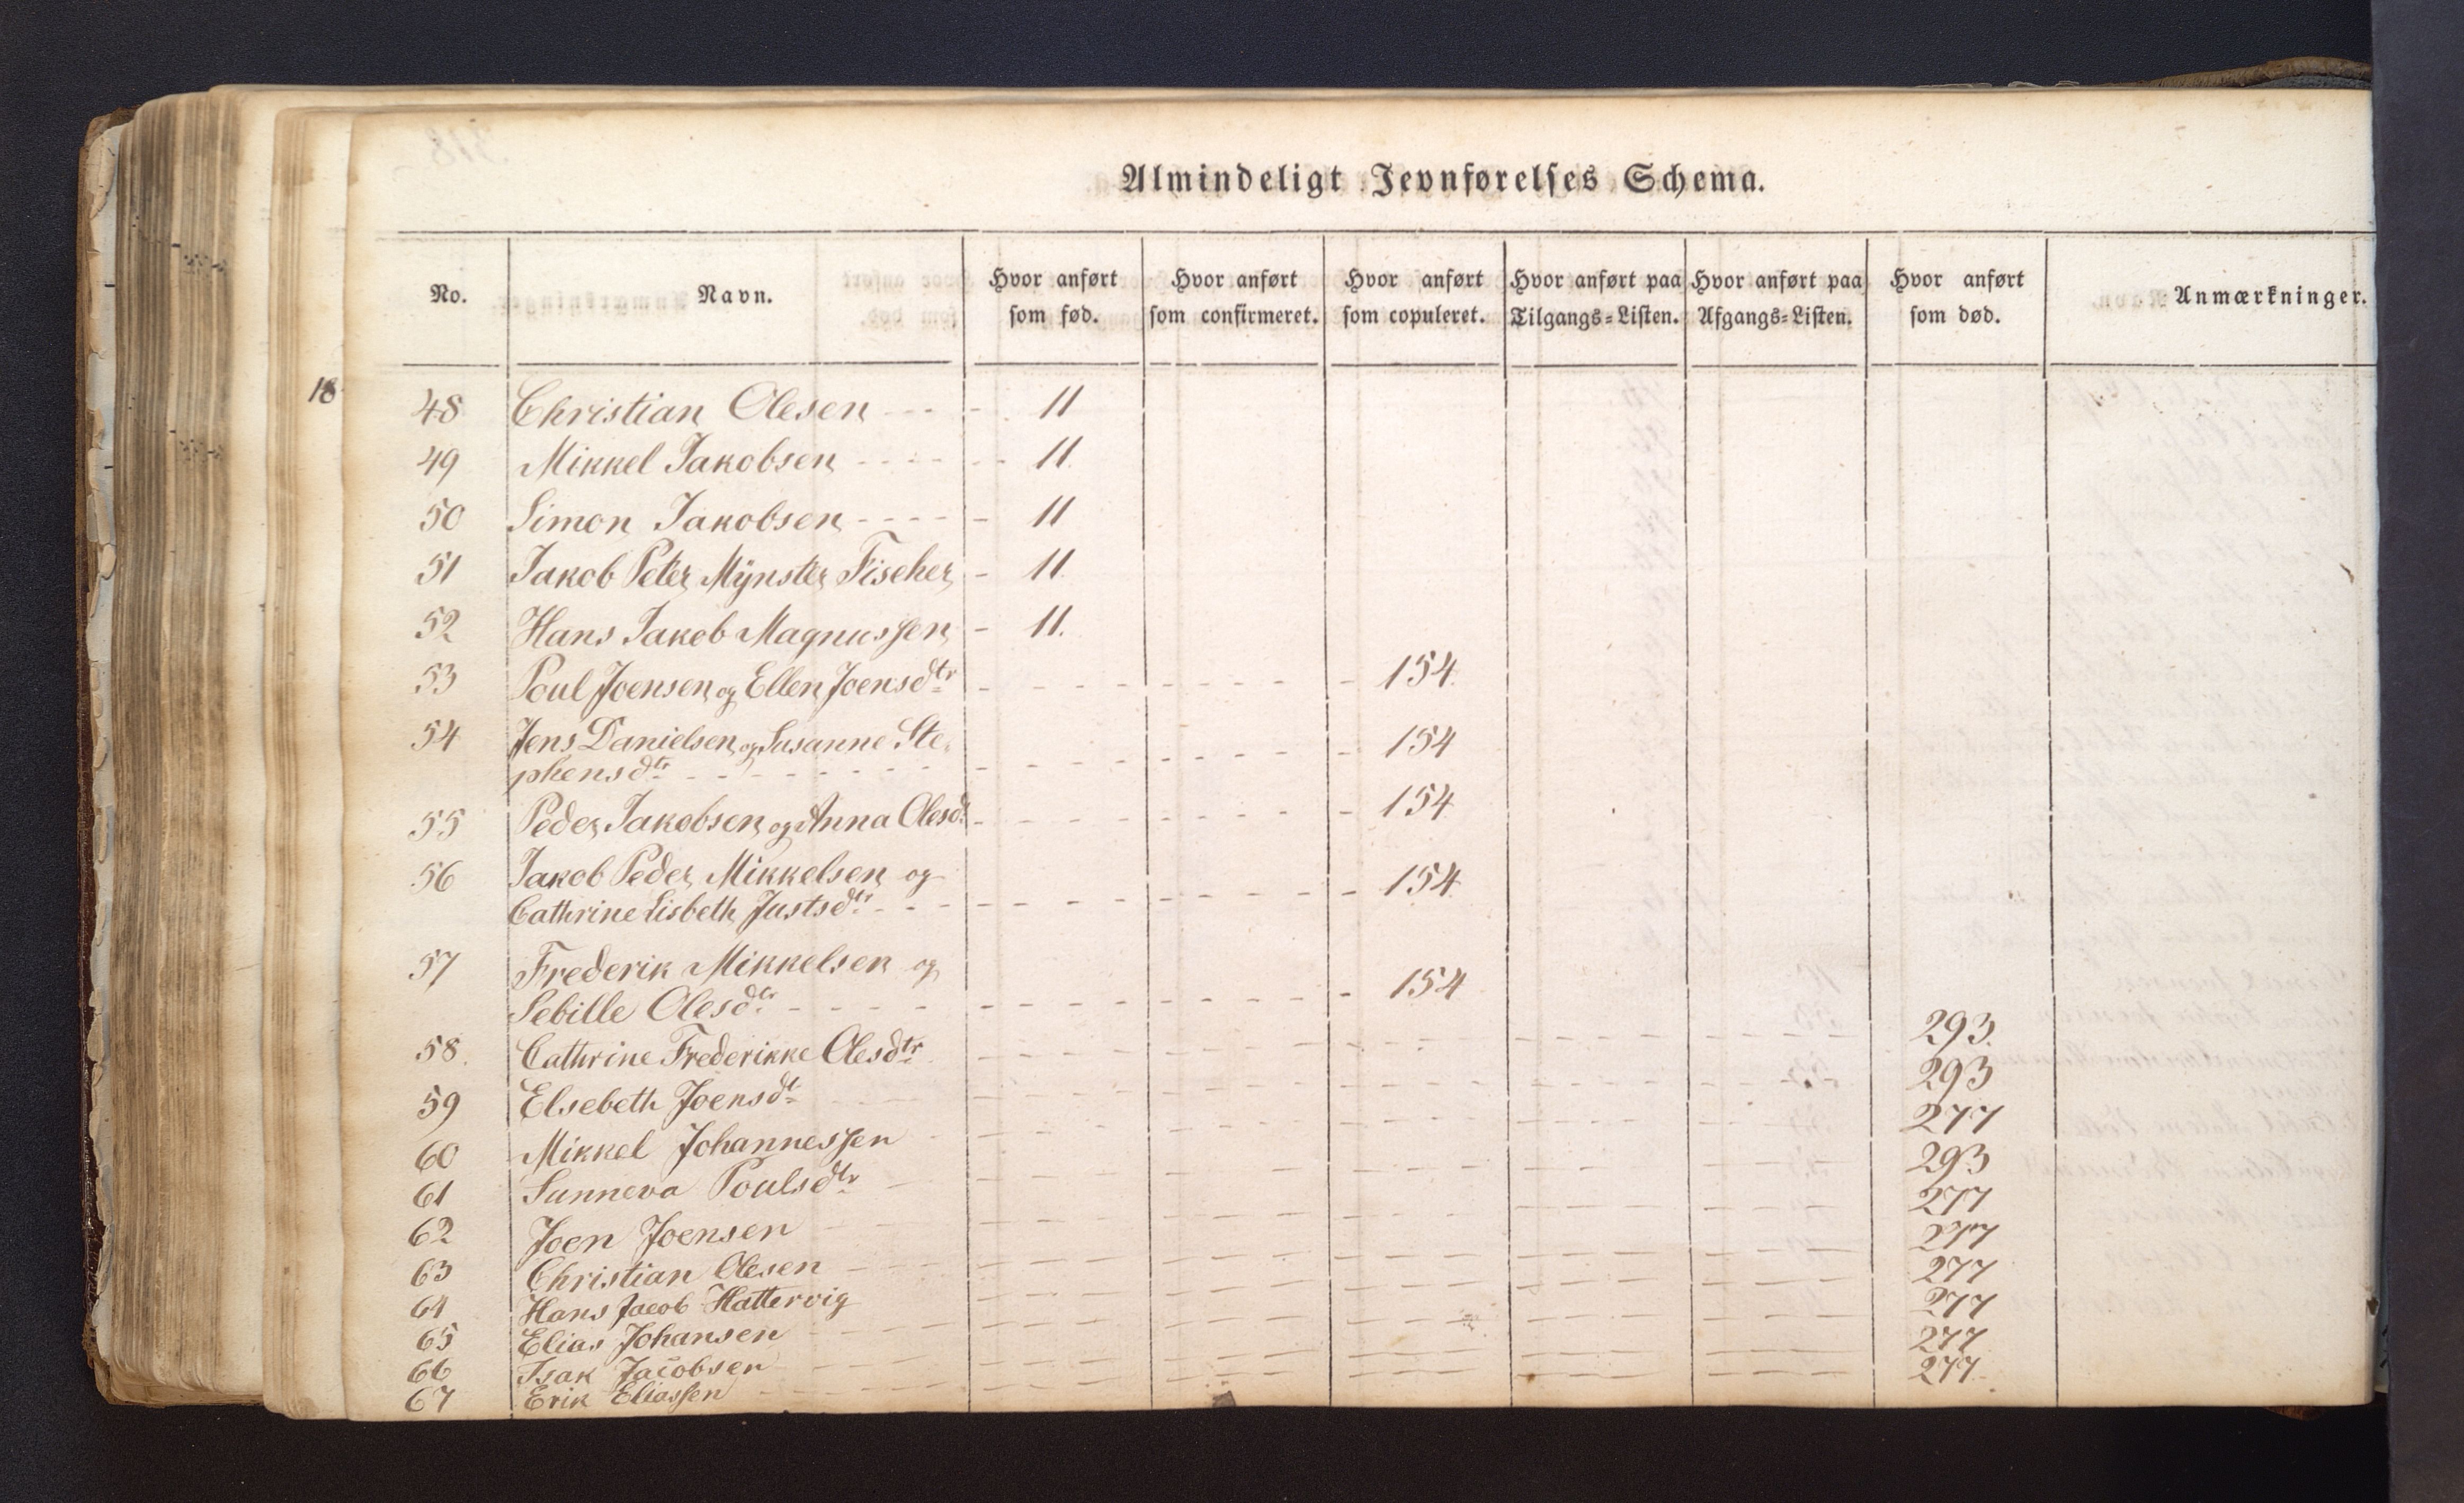 Almindeligt Jevnførelses Schema.
No. Navn. Hvor anført som fød. Hvor anført som confirmeret. Hvor anført som copuleret. Hvor anført paa Tilgangs-Listen. Hvor anført paa Afgangs-Listen. Hvor anført som død. Anmærkninger.
18
48 Christian Olesen - - - 11
49 Mikkel Jakobsen - - - - 11.
50 Simon Jakobsen - - - - 11
51 Jakob Peter Mÿnster Fischer - 11.
52 Hans Jakob Magnussen - 11.
53 Poul Joensen og Ellen Joensdtr - - - - - 154.
54 Jens Danielsen og Susanne Ste-
phensdtr - - - - - 154
55 Peder Jakobsen og Anna Olesdt - - - - - 154
56 Jakob Peder Mikkelsen og
Cathrine Lisbeth Justsdtr - - - - - 154.
57 Frederik Mikkelsen og
Sebille Olesdtr - - - - - 154
58. Cathrine Frederikke Olesdtr - - - - - 293.
59 Elsebeth Joensdt - - - - - 293
60 Mikkel Johannessen - - - - - 277
61 Sunneva Poulsdtr - - - - - 293
62 Joen Joensen - - - - - 277
63 Christian Olesen - - - - - 277
64 Hans Jacob Hattervig - - - - - 277
65 Elias Johansen - - - - - 277
66 Isak Jacobsen - - - - - 277
67 Erik Eliassen - - - - - 277.